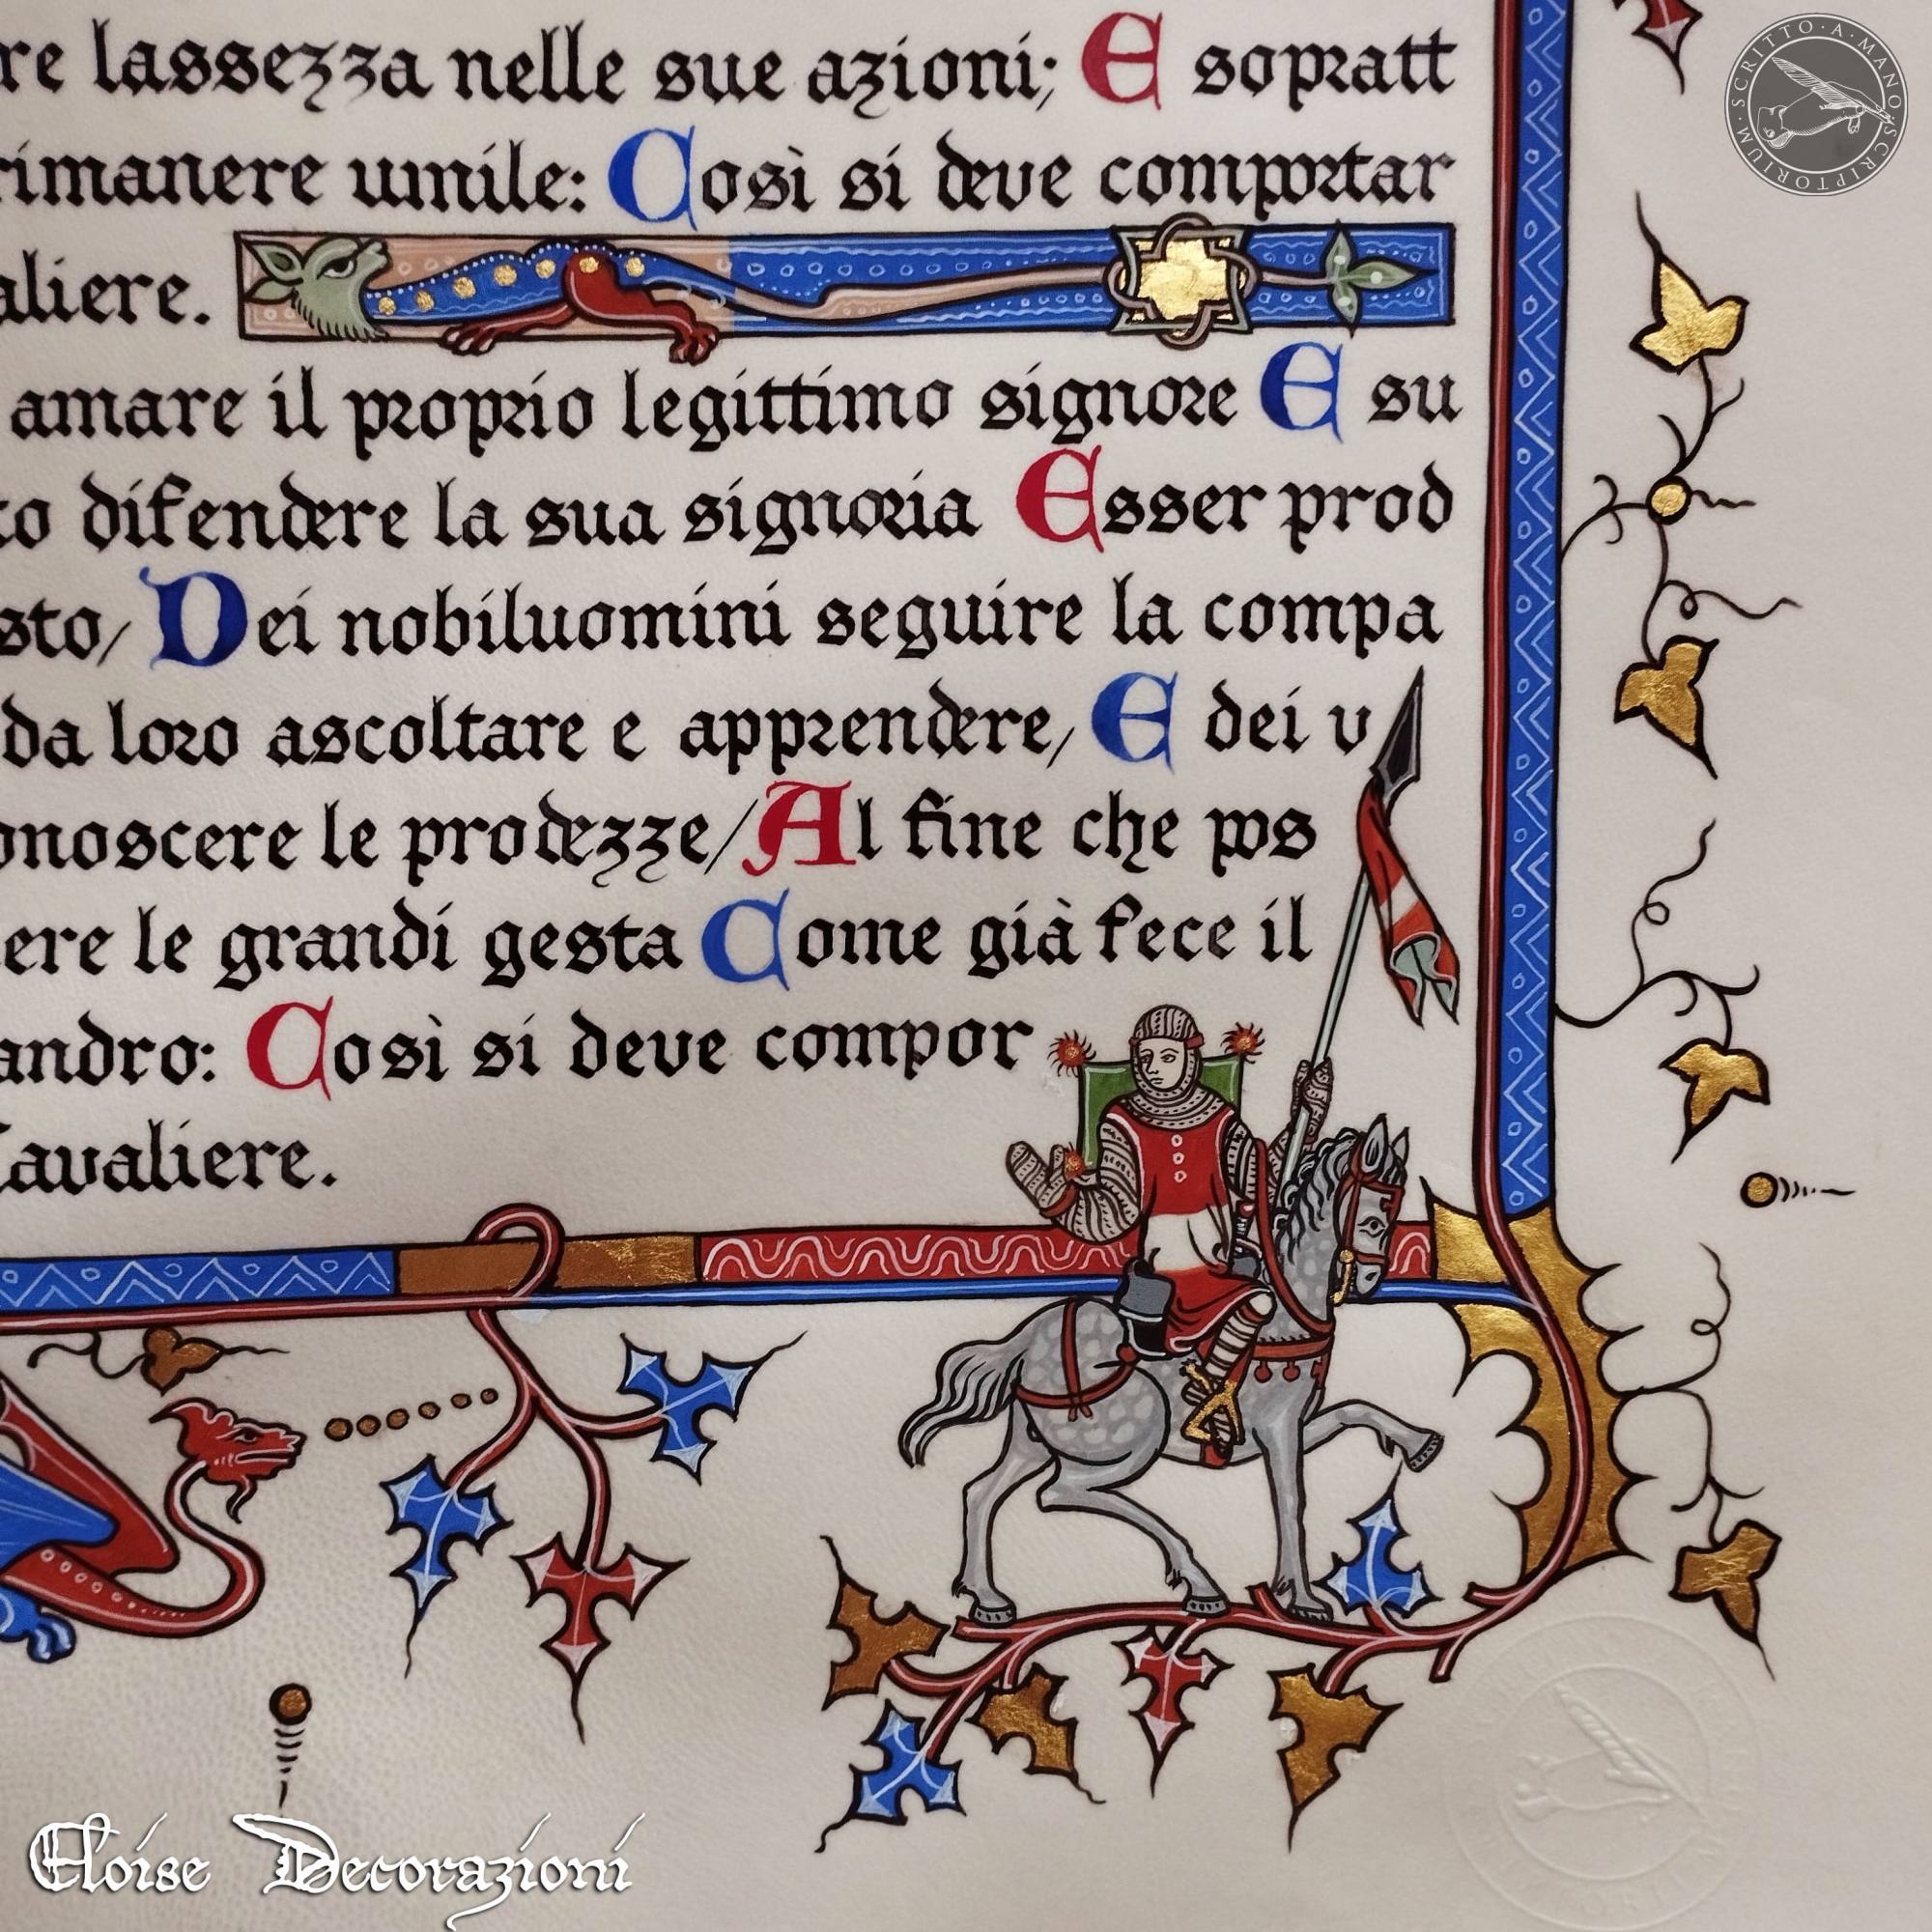 re lassezza nelle sue azioni; E sopratt
rimanere umile: Così si deve comportar
aliere.
amare il proprio legittimo signore E su
to difendere la sua signoria Esser prod
sto/ Dei nobiluomini seguire la compa
da loro ascoltare e apprendere/ E dei v
onoscere le prodezze/ Al fine che pos
ere le grandi gesta Come già fece il
andro: Così si deve compor
Cavaliere.
SCRITTO·A·MANO·SCRIPTORIUM·
Eloise Decorazioni